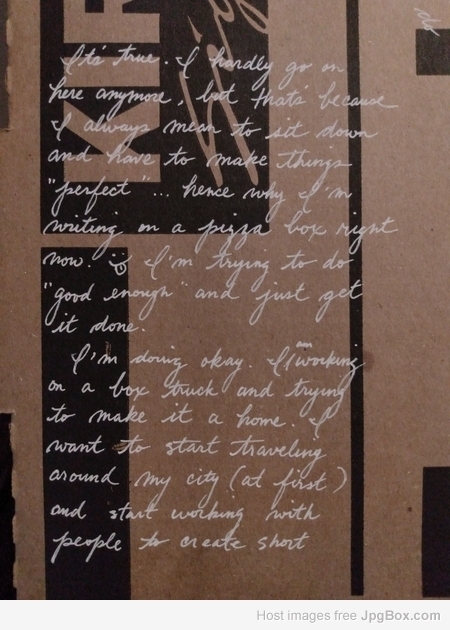 It's true. I hardly go on
here anymore, but that's because
I always mean to sit down
and have to make things
"perfect"... hence why I'm
writing on a pizza box right
now. :) I'm trying to do
"good enough" and just get
it done.
I'm doing okay. I am working
on a box truck and trying
to make it a home. I
want to start traveling
around my city (at first)
and start working with
people to create short
Host images free JpgBox.com